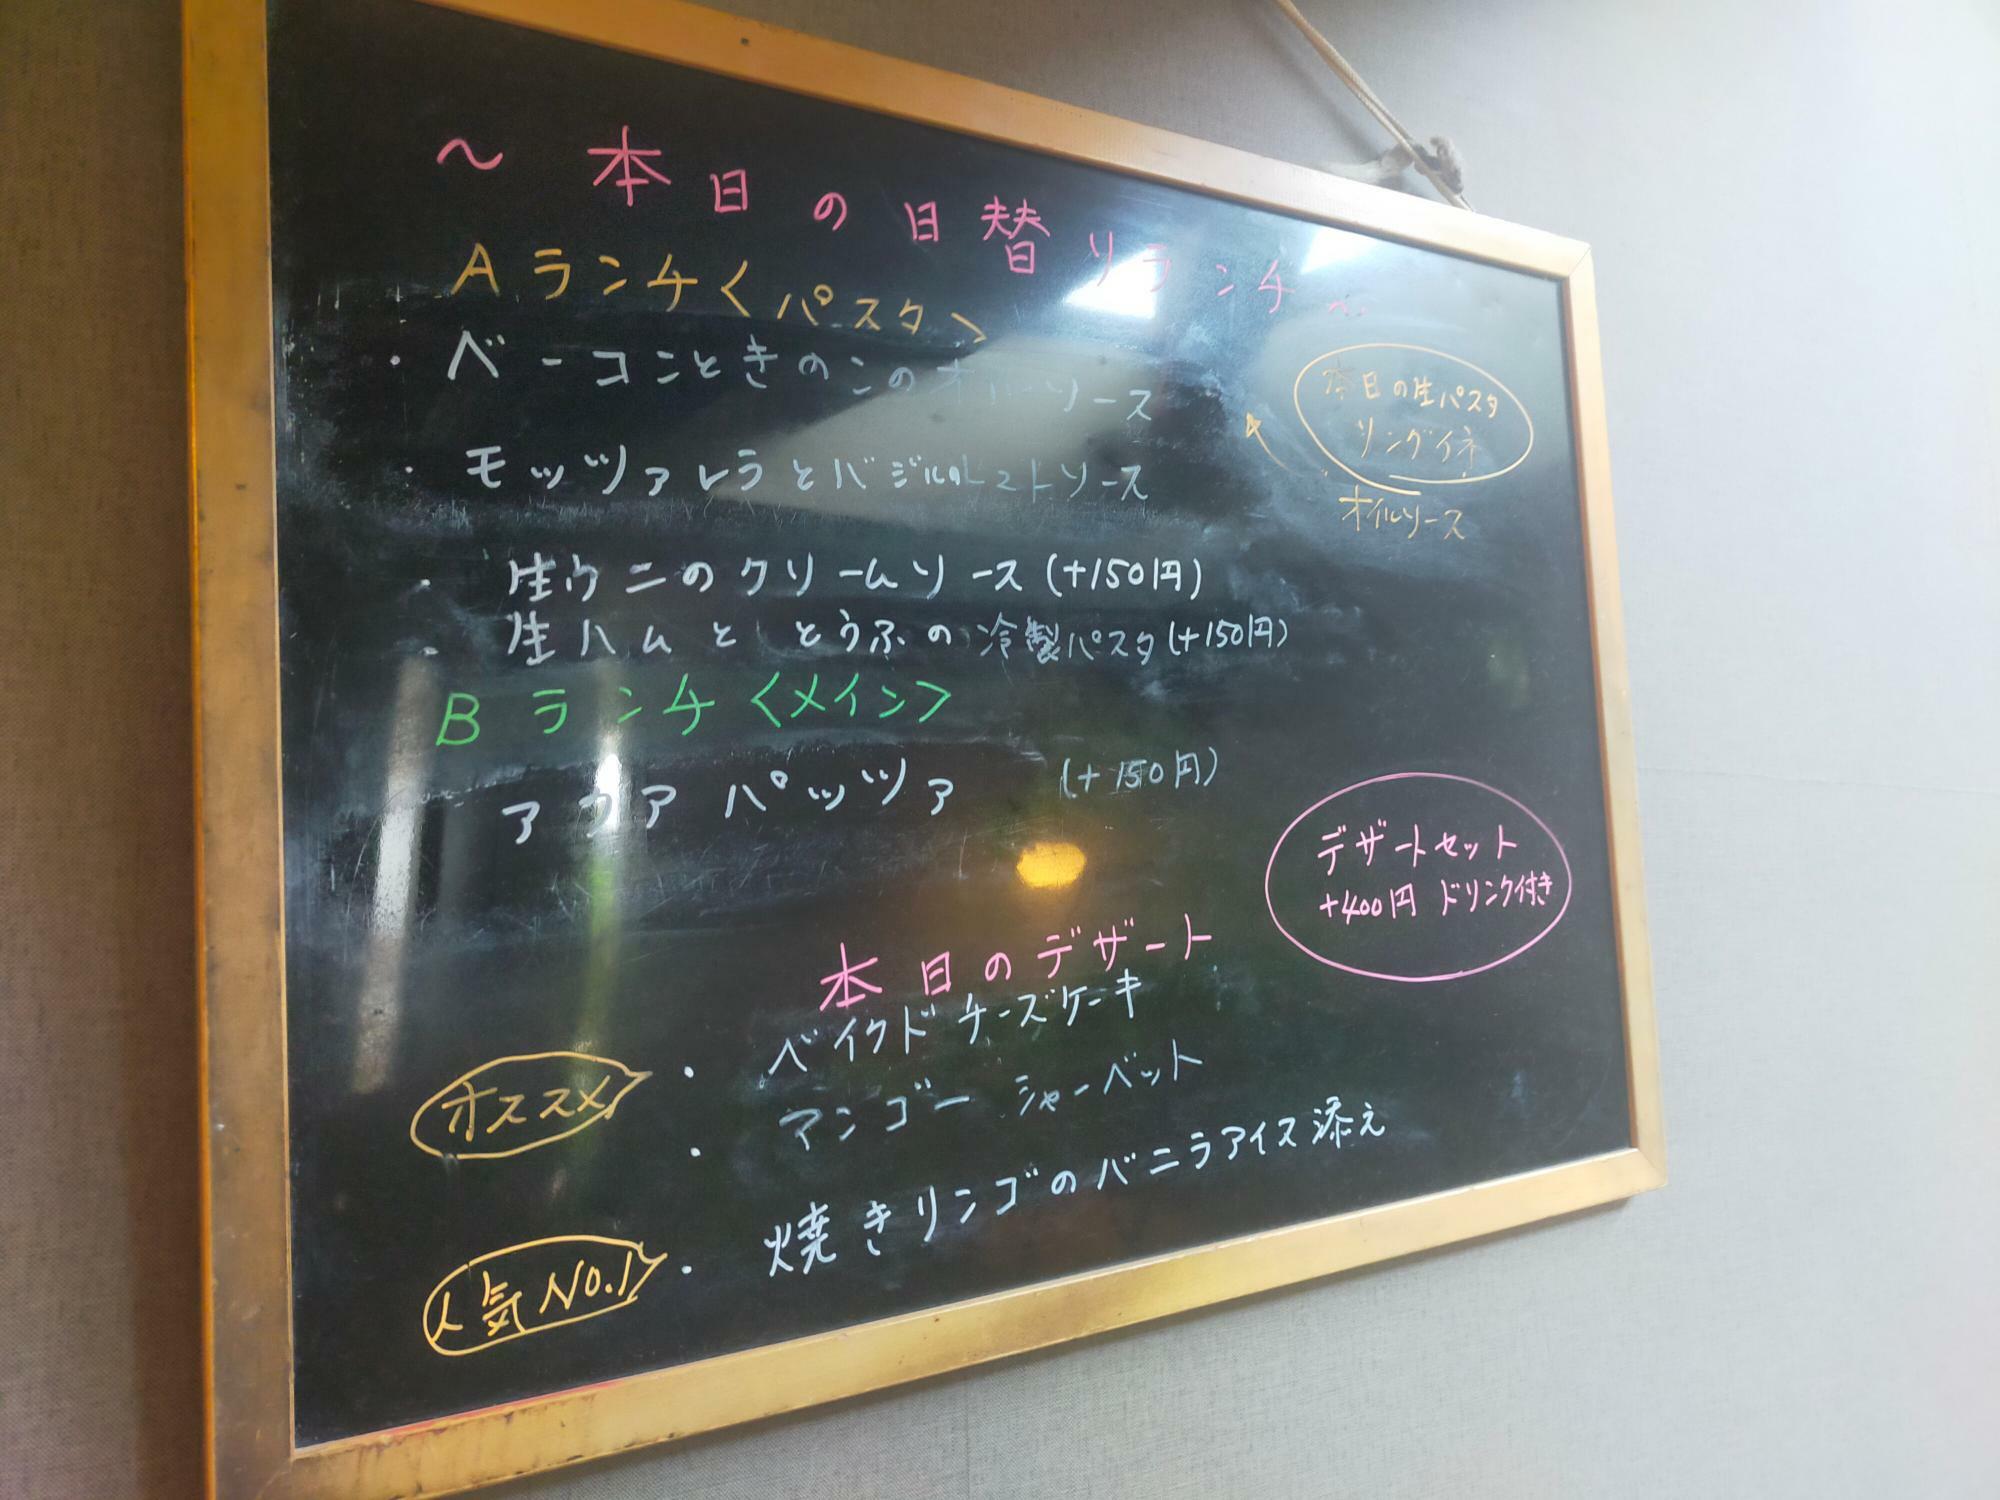 〜 本日の日替リランチ 〜
Aランチ〈パスタ〉
・ベーコンときのこのオイルソース
・モッツァレラとバジルのトマトソース
本日の生パスタ
リングイネ
オイルソース
・生ウニのクリームソース(+150円)
・生ハムととうふの冷製パスタ(+150円)
Bランチ〈メイン〉
アクアパッツァ (+150円)
デザートセット
+400円 ドリンク付き
本日のデザート
オススメ
・ベイクドチーズケーキ
・アンゴーシャーベット
人気NO.1
・焼きリンゴのバニラアイス添え